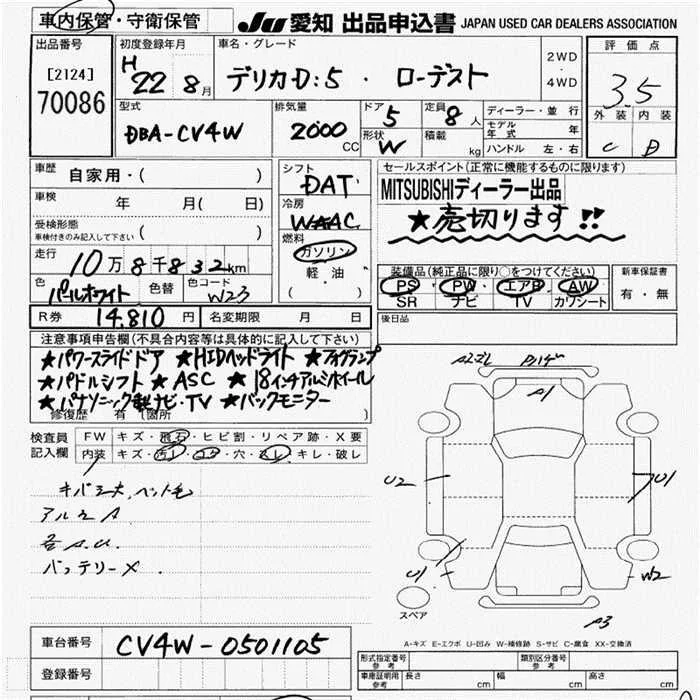 車内保管・守衛保管 JU 愛知 出品申込書 JAPAN USED CAR DEALERS ASSOCIATION
出品番号 初度登録年月 車名・グレード 2WD・4WD 評価点
[2124] 70086 H 22 8月 デリカD:5・ローデスト 3.5
型式 排気量 ドア 5 定員 8人 ディーラー・並行 外装 内装
DBA-CV4W 2000CC 形状 W 積載 kg モデル年式 年 C D
ハンドル 左・右
車歴 自家用・( ) シフト DAT セールスポイント(正常に機能するものに限ります)
車検 年 月( 日) 冷房 WAAC MITSUBISHIディーラー出品
受検形態 車検付きのみ記入して下さい ( ) 燃料 ガソリン ★売切ります!!
走行 10万8千832km 軽油 装備品(純正品に限り○をつけてください) 新車保証書
色 パールホワイト 色替 色コード W23 ( ) PS PW エアB AW 有・無
SR ナビ TV カワシート
R券 14,810円 名変期限 月 日 後日品
注意事項申告欄(不具合内容等は具体的に記入して下さい)
★パワースライドドア ★HIDヘッドライト ★フォグランプ
★パドルシフト ★ASC ★18インチアルミホイール
★パナソニック製ナビ・TV ★バックモニター
修復歴 有(箇所
検査員記入欄 FW キズ・飛石・ヒビ割・リペア跡・X要
内装 キズ・汚レ・コゲ・穴・スレ・キレ・破レ
アルミA
バッテリーX
A1
U2 U1
U1 W2
スペア A3
A-キズ E-エクボ U-凹み W-補修跡 S-サビ C-腐食 XX-交換済
車台番号 CV4W-0501105
登録番号
形式指定番号 参考 類別区分番号 参考
車庫証明用 参考 長さ cm 幅 cm 高さ cm